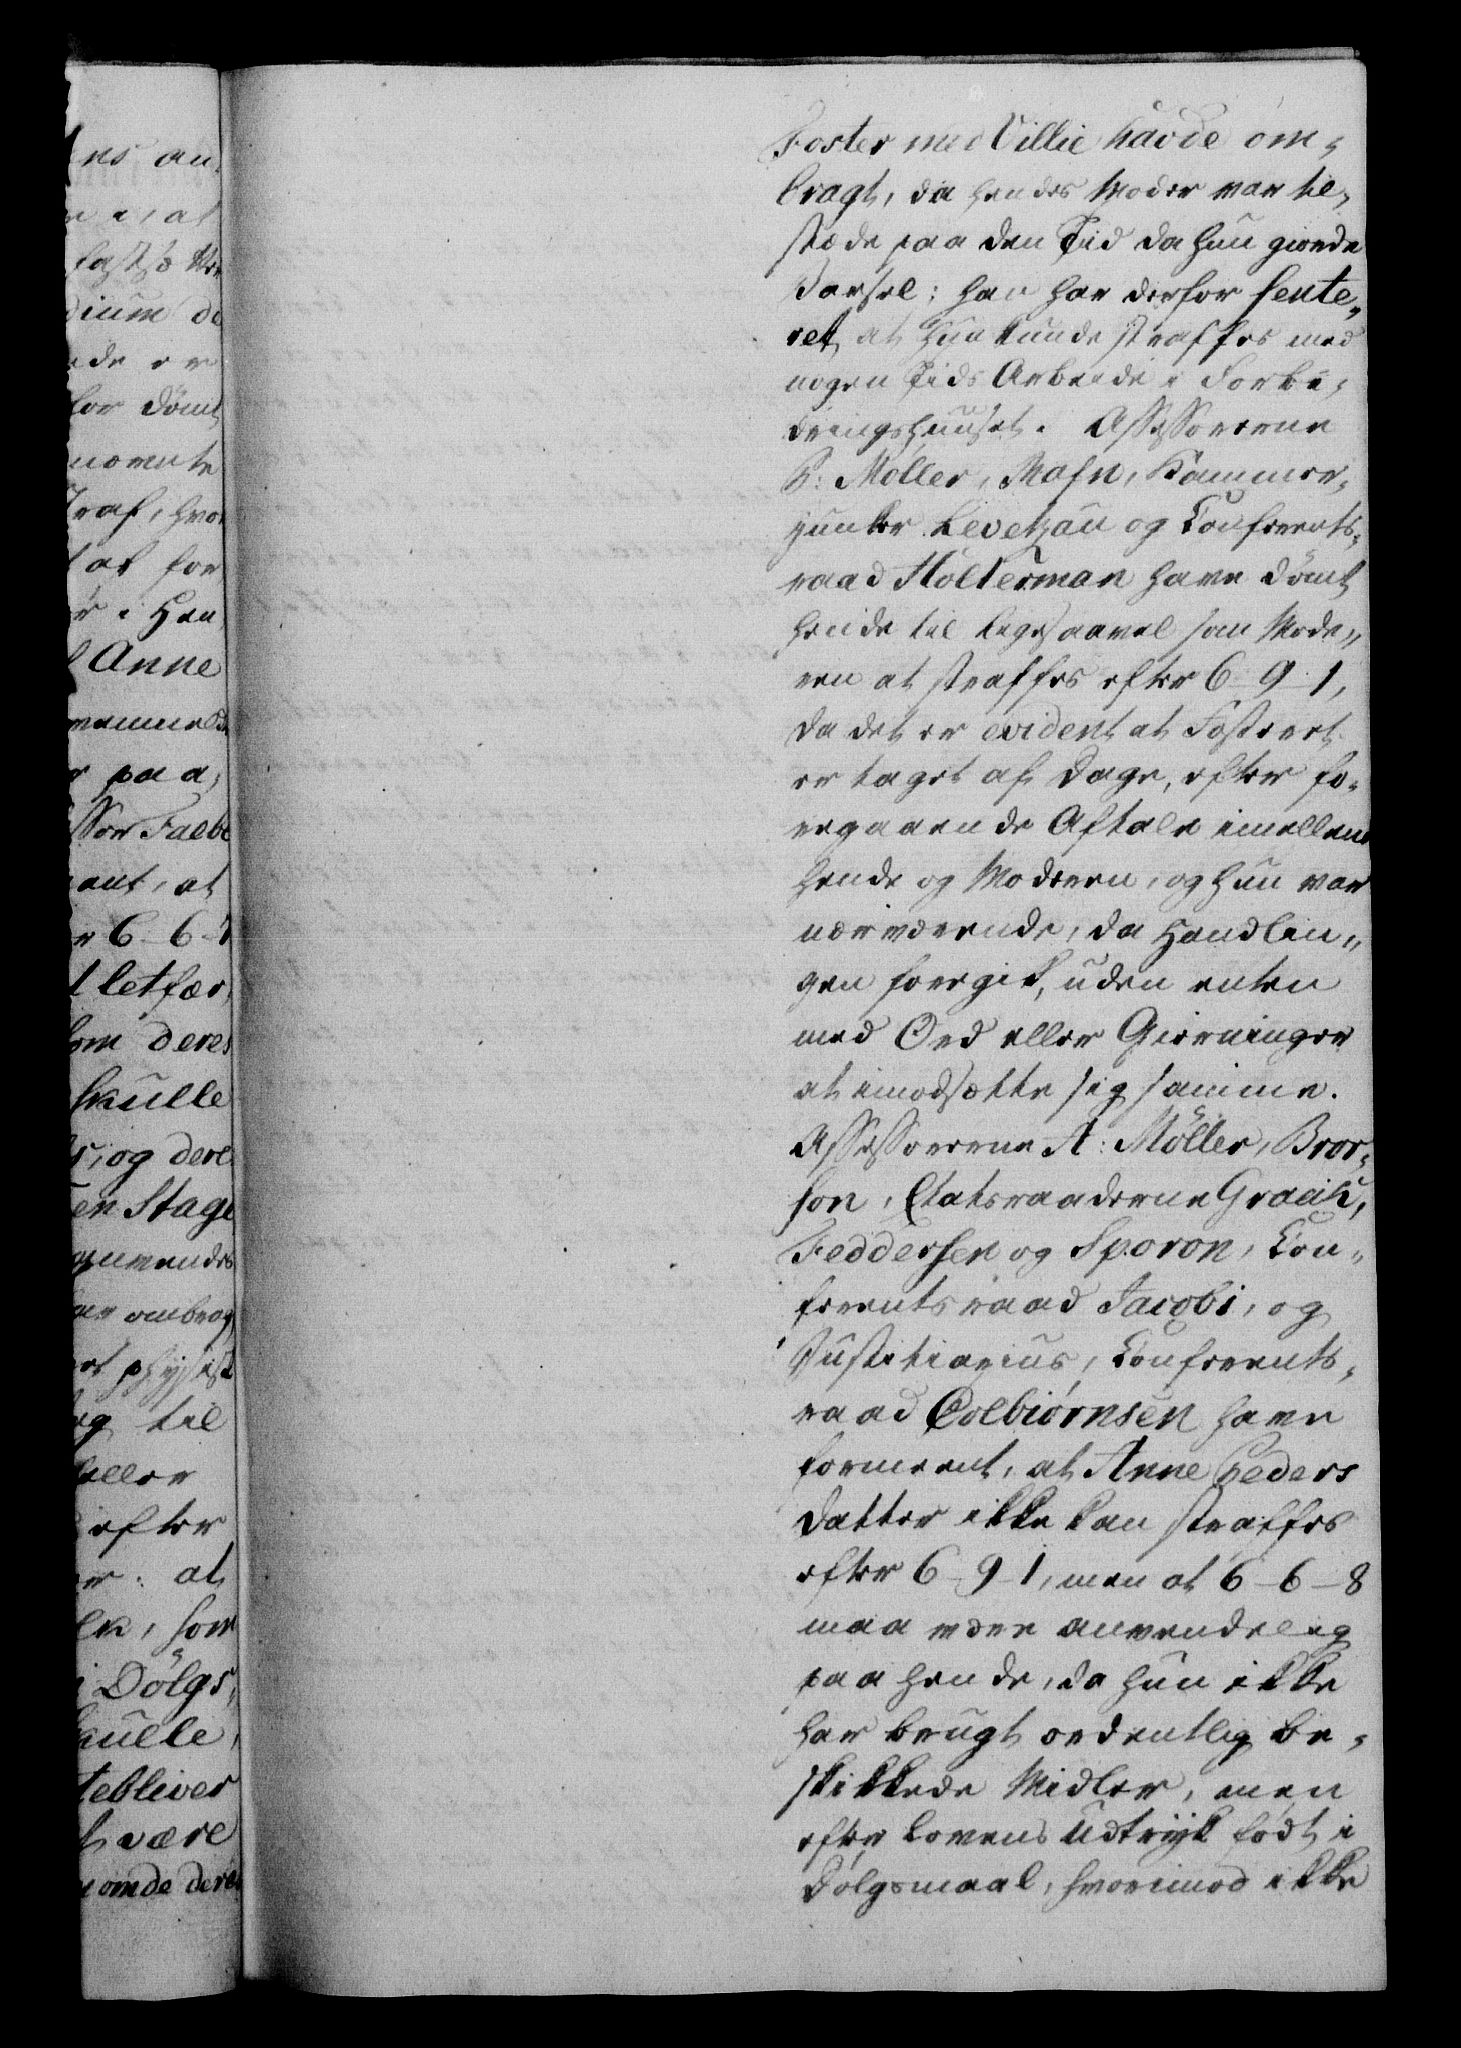 Foster med Villie havde om-
bragt, da hendes Moder var til-
stæde paa den Tid da hun giorde
Barsel; han har derfor sente-
ret at hun kunde straffes med
nogen Tids Arbeide i Forbe-
dringshuuset. Assessorerne
P: Møller, Mas̄n, Kammer-
junker Levetzau og Conferents-
raad Holterman have dømt
hende til ligesaavel som Mode-
ren at straffes efter 6-9-1,
da det er evident at Fosteret
er taget af Dage, efter fo-
regaaende Aftale imellem
hende og Moderen, og hun var
nærværende, da Handlin-
gen foregik, uden enten
med Ord eller Gierninger
at imodsætte sig samme.
Assessorerne A: Møller, Bror-
son, Etatsraaderne Graah,
Feddersen og Sporon, Con-
ferentsraad Jacobi, og
Justitiarius, Conferents-
raad Colbiørnsen have
formeent, at Anne Peders
Datter ikke kan straffes
efter 6-9-1, men at 6-6-8
maa være anvendelig
paa hende, da hun ikke
har brugt ordentlig be-
skikkede Midler, men
efter Lovens Udtryk født i
Dølgsmaal, hvorimod ikke